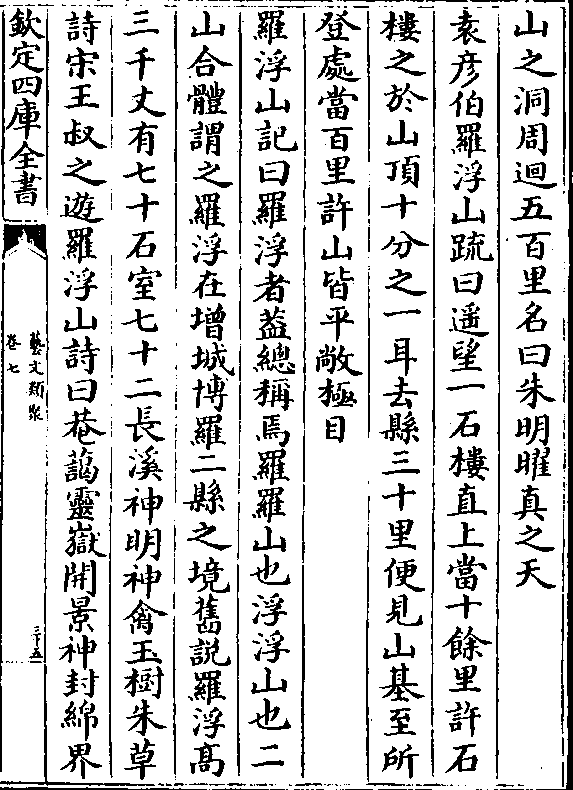 山之洞周迴五百里名曰朱明曜真之天
袁彦伯羅浮山䟽曰遥望一石樓直上當十餘里許石
樓之於山頂十分之一耳去縣三十里便見山基至所
登處當百里許山皆平敞極目
羅浮山記曰羅浮者葢總稱焉羅羅山也浮浮山也二
山合體謂之羅浮在増城博羅二縣之境舊説羅浮髙
三千丈有七十石室七十二長溪神明神禽玉樹朱草
詩宋王叔之遊羅浮山詩曰菴藹靈嶽開景神封綿界
欽定四庫全書
藝文類聚
卷七
三十五